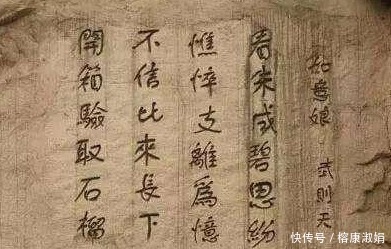 如意娘 武则天
看朱成碧思紛
憔悴支離爲憶
不信比來長下
開箱驗取石榴
快传号/榕康淑娟